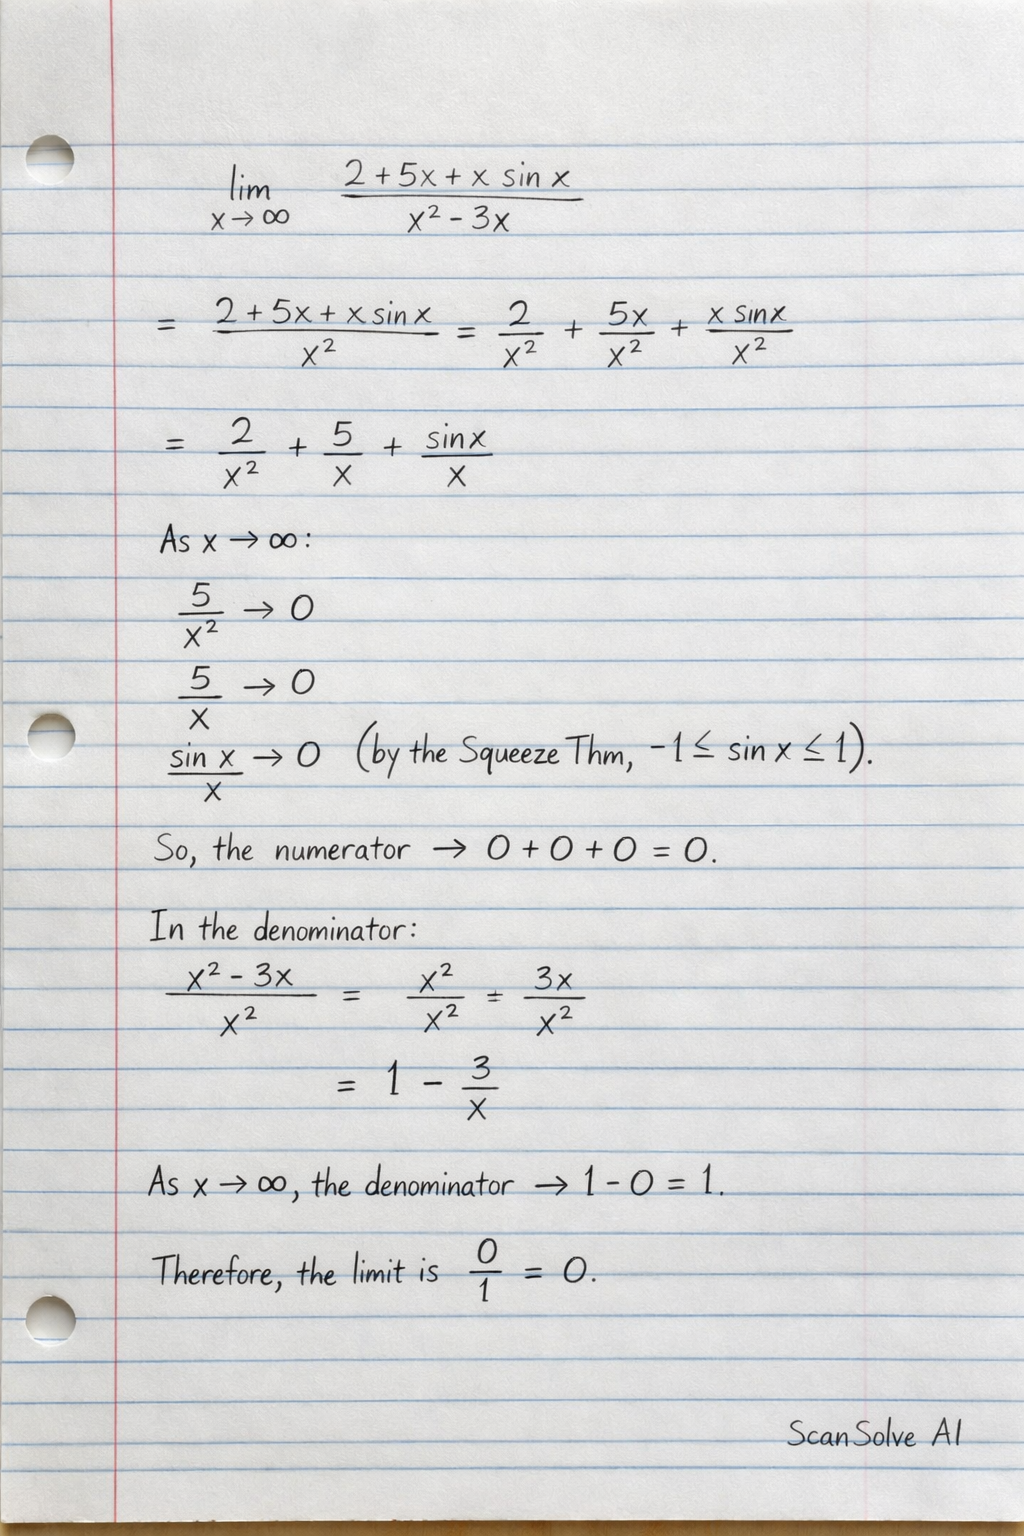 lim x→∞ (2 + 5x + x sin x)/(x² - 3x)
= (2 + 5x + x sin x)/x² = 2/x² + 5x/x² + (x sin x)/x²
= 2/x² + 5/x + (sin x)/x
As x → ∞:
5/x² → 0
5/x → 0
(sin x)/x → 0 (by the Squeeze Thm, -1 ≤ sin x ≤ 1).
So, the numerator → 0 + 0 + 0 = 0.
In the denominator:
(x² - 3x)/x² = x²/x² = 3x/x²
= 1 - 3/x
As x → ∞, the denominator → 1 - 0 = 1.
Therefore, the limit is 0/1 = 0.
ScanSolve AI